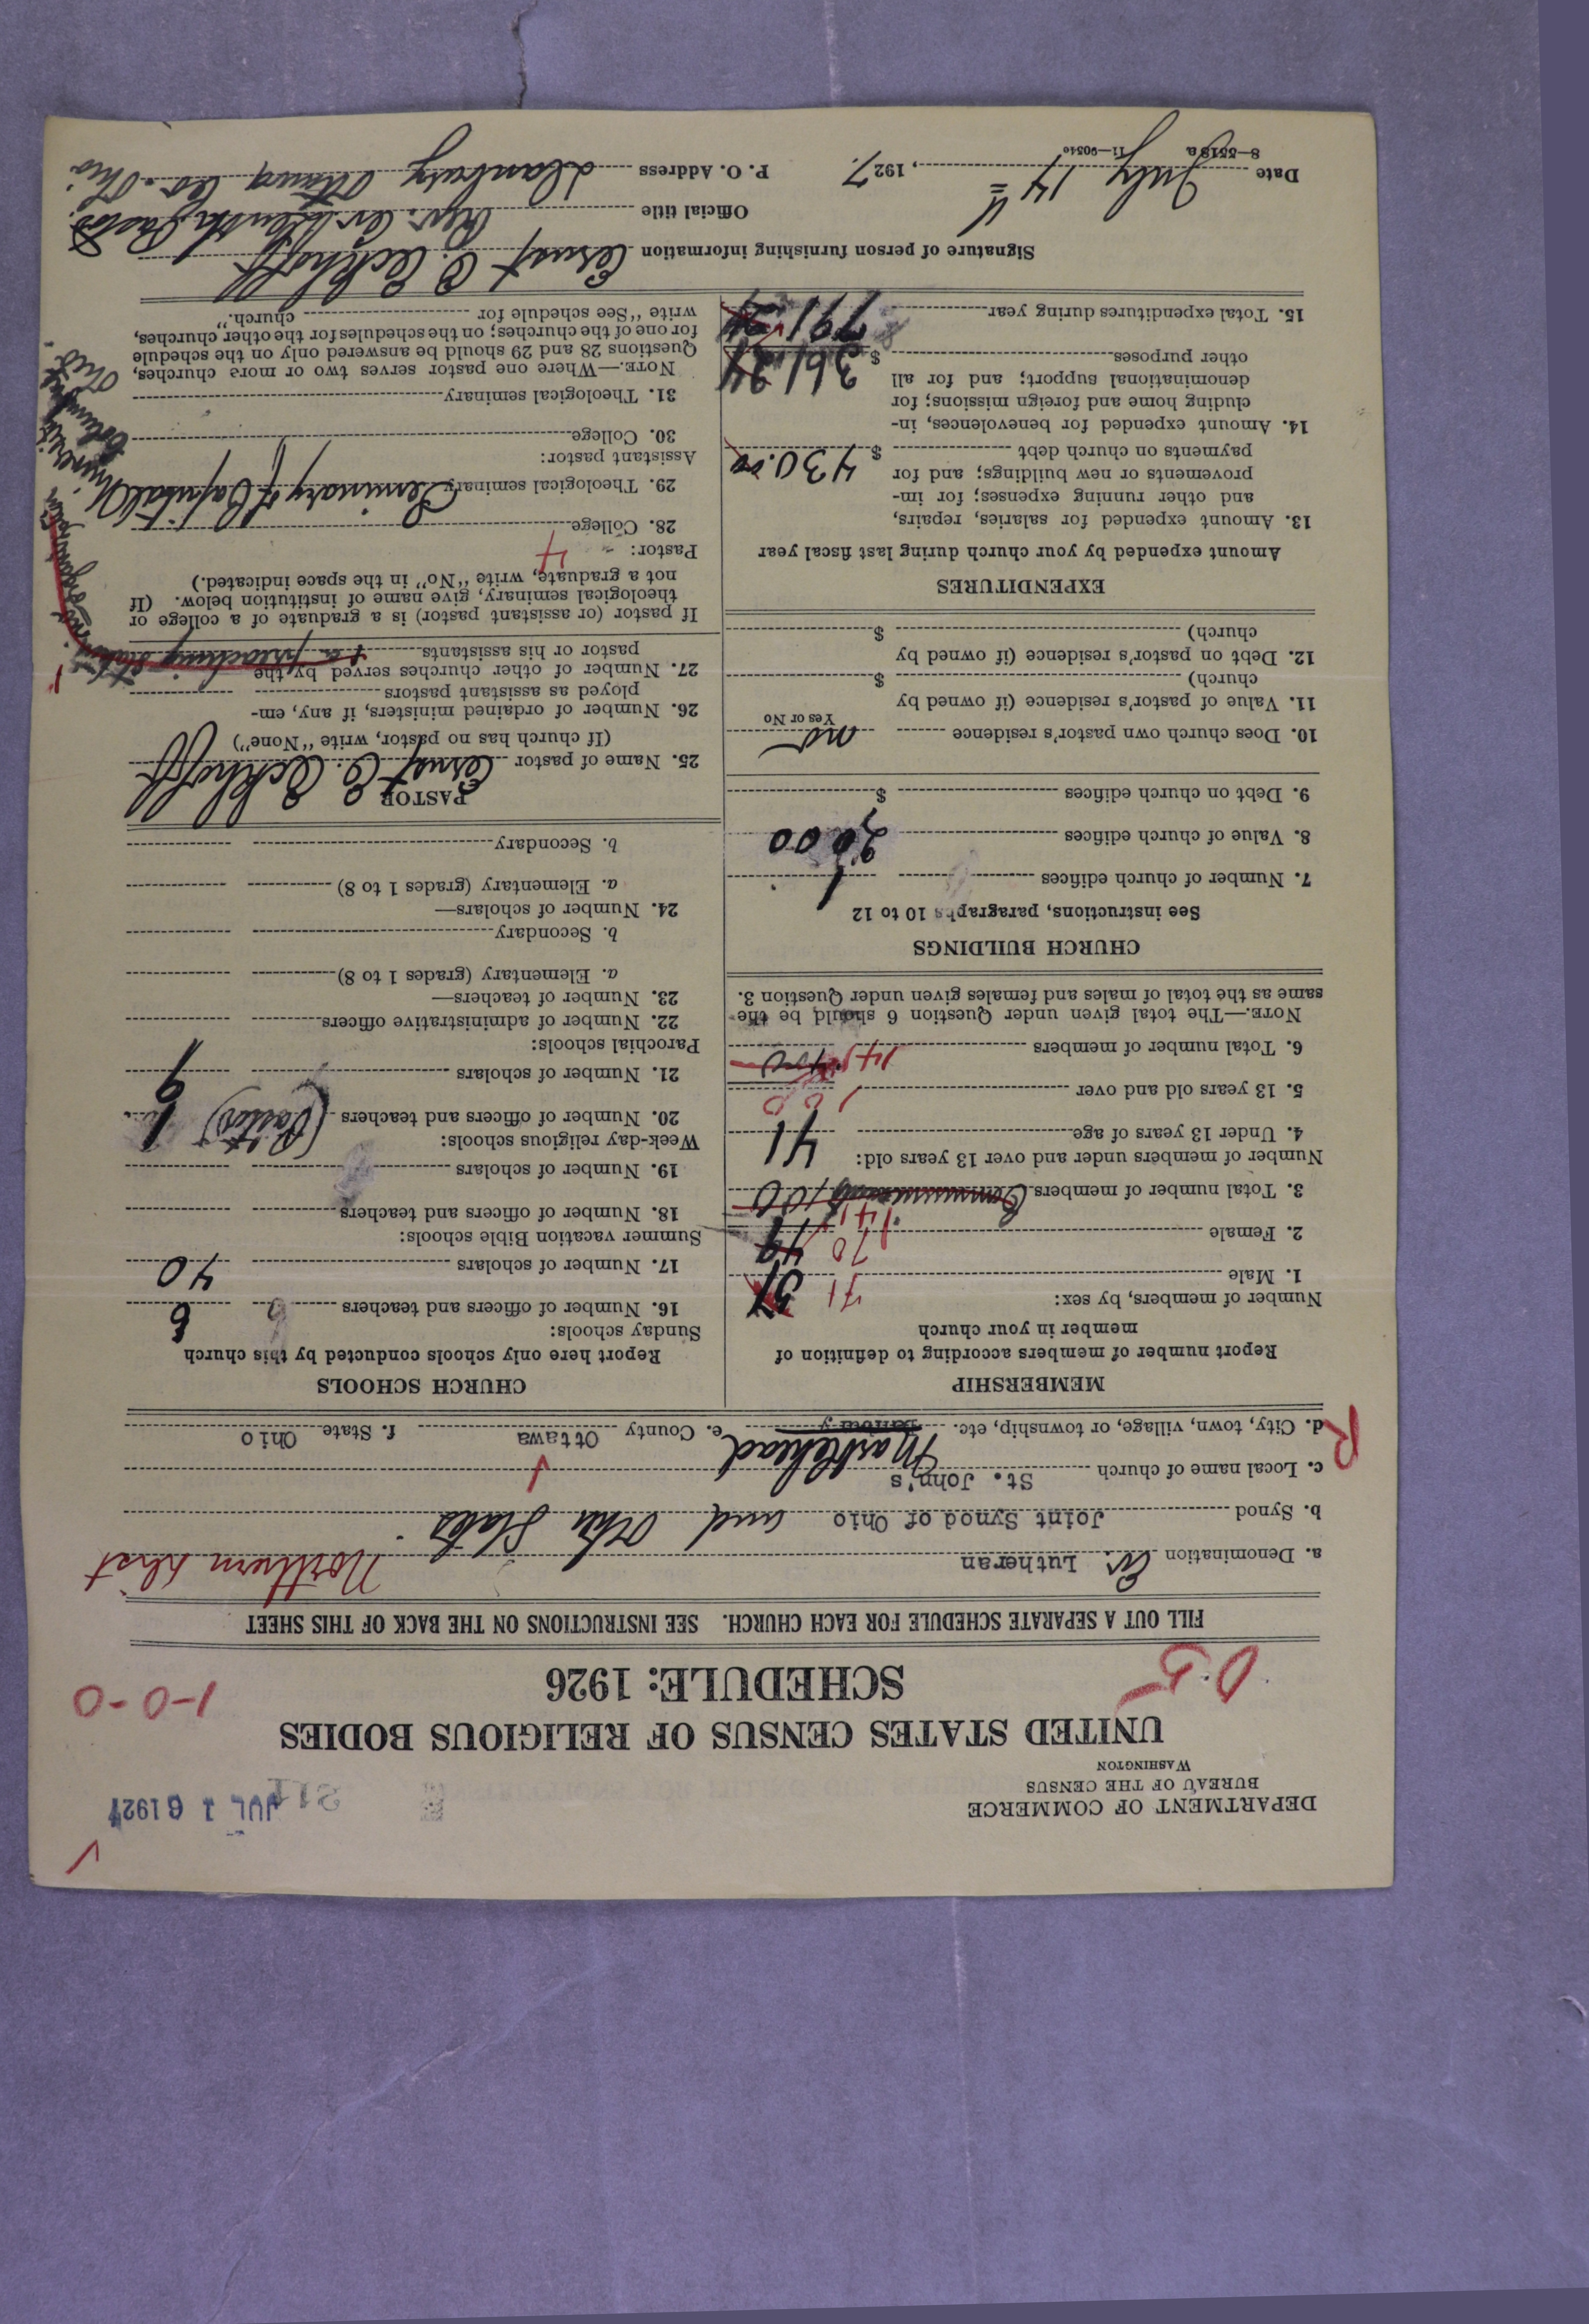 DEPARTMENT OF COMMERCE
BUREAU OF THE CENSUS
WASHINGTON
JUL 16 1927
UNITED STATES CENSUS OF RELIGIOUS BODIES
SCHEDULE: 1926
1-0-0
FILL OUT A SEPARATE SCHEDULE FOR EACH CHURCH. SEE INSTRUCTIONS ON THE BACK OF THIS SHEET
a. Denomination Ev. Lutheran Northern Dist
b. Synod Joint Synod of Ohio and Other States
c. Local name of church St. John's
R
d. City, town, village, or township, etc. Danbury Marblehead e. County Ottawa f. State Ohio
MEMBERSHIP
Report number of members according to definition of
member in your church
Number of members, by sex:
1. Male 71
2. Female 70 49
3. Total number of members Communicants 100 141
Number of members under and over 13 years old:
4. Under 13 years of age 41
5. 13 years old and over 100
6. Total number of members 141
NOTE.—The total given under Question 6 should be the
same as the total of males and females given under Question 3.
CHURCH BUILDINGS
See instructions, paragraphs 10 to 12
7. Number of church edifices 1
8. Value of church edifices 2,000
9. Debt on church edifices $
10. Does church own pastor's residence no
Yes or No
11. Value of pastor's residence (if owned by
church) $
12. Debt on pastor's residence (if owned by
church) $
EXPENDITURES
Amount expended by your church during last fiscal year
13. Amount expended for salaries, repairs,
and other running expenses; for im-
provements or new buildings; and for
payments on church debt $ 430.00
14. Amount expended for benevolences, in-
cluding home and foreign missions; for
denominational support; and for all
other purposes $ 361 24
15. Total expenditures during year 791 24
CHURCH SCHOOLS
Report here only schools conducted by this church
Sunday schools:
16. Number of officers and teachers 6
17. Number of scholars 40
Summer vacation Bible schools:
18. Number of officers and teachers
19. Number of scholars
Week-day religious schools:
20. Number of officers and teachers (Pastor) 1
21. Number of scholars 9
Parochial schools:
22. Number of administrative officers
23. Number of teachers—
a. Elementary (grades 1 to 8)
b. Secondary
24. Number of scholars—
a. Elementary (grades 1 to 8)
b. Secondary
PASTOR
25. Name of pastor Ernst C. Eckhoff
(If church has no pastor, write "None")
26. Number of ordained ministers, if any, em-
ployed as assistant pastors
27. Number of other churches served by the
pastor or his assistants + a preaching station
If pastor (or assistant pastor) is a graduate of a college or
theological seminary, give name of institution below. (If
not a graduate, write "No" in the space indicated.)
Pastor: 4
28. College
29. Theological seminary Seminary of Capital University, Columbus Ohio.
Assistant pastor:
30. College
31. Theological seminary
NOTE.—Where one pastor serves two or more churches,
Questions 28 and 29 should be answered only on the schedule
for one of the churches; on the schedules for the other churches,
write "See schedule for church."
Signature of person furnishing information Ernst C. Eckhoff
Official title Rev. Ev. Lutheran Pastor.
Date July 14th, 1927. P. O. Address Danbury Ottawa Co. Ohio
8—5518a 11—9054